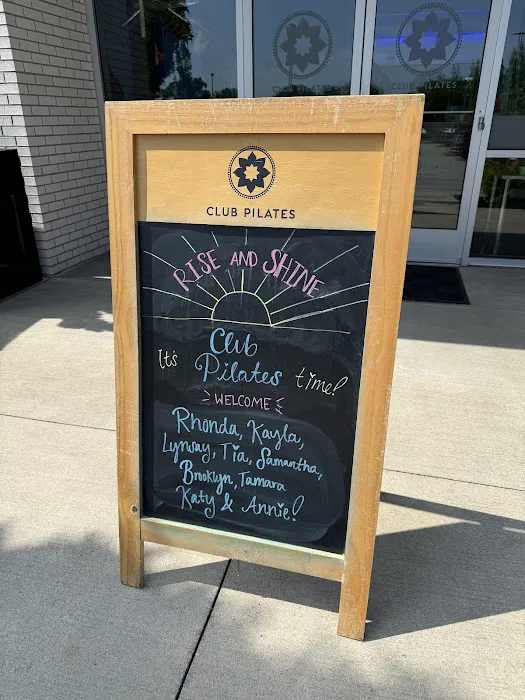 CLUB PILATES
CLUB PILATES
CLUB PILATES
RISE AND SHINE
It's Club Pilates time!
WELCOME
Rhonda, Kayla,
Lynsay, Tia, Samantha,
Brooklyn, Tamara
Katy & Annie!